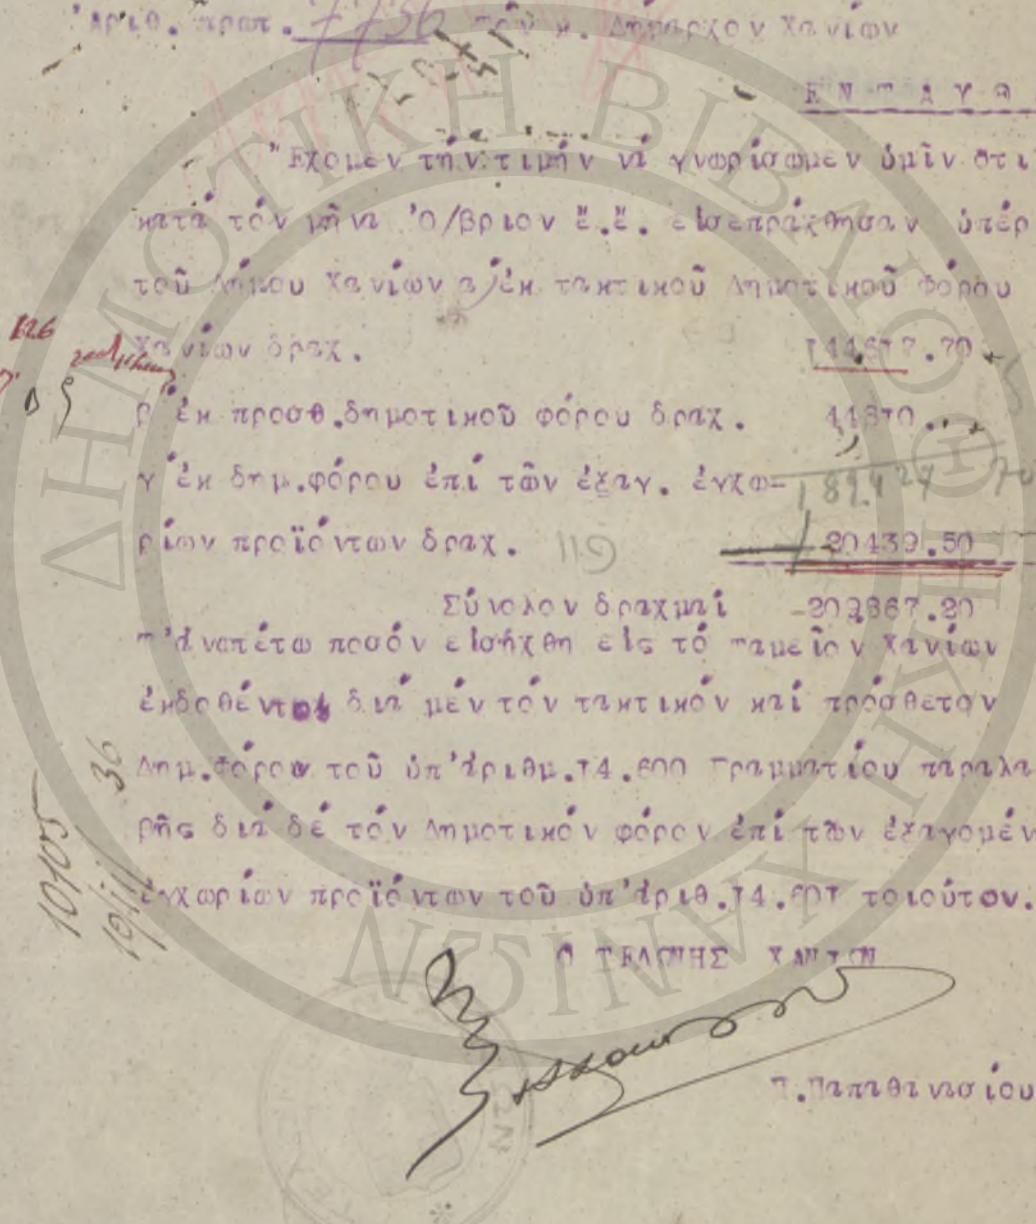 Ἀριθ. πρωτ. 7736 τόν κ. Δήμαρχον Χανίων
ΕΝΤΑΥΘ
Ἔχομεν τήν τιμήν νά γνωρίσωμεν ὑμῖν ὅτι
κατά τόν μῆνα Ὀ/βριον ἔ.ἔ. εἰσεπράχθησαν ὑπέρ
τοῦ Δήμου Χανίων α)ἐκ τακτικοῦ Δημοτικοῦ Φόρου
126
Χανίων δραχ. 144577.70
β'ἐκ προσθ.δημοτικοῦ φόρου δραχ. 44870..
γ'ἐκ δημ.φόρου ἐπί τῶν ἐξαγ. ἐγχω-
ρίων προϊόντων δραχ. 119 20439.50
Σύνολον δραχμαί -209867.20
Τ'ἀνωτέτω ποσόν εἰσήχθη εἰς τό Ταμεῖον Χανίων
ἐκδοθέντος διά μέν τόν τακτικόν καί πρόσθετον
Δημ.Φόρον τοῦ ὑπ'ἀριθμ.14.600 Γραμματίου παραλα
βῆς διά δέ τόν Δημοτικόν φόρον ἐπί τῶν ἐξαγομέν
ἐγχωρίων προϊόντων τοῦ ὑπ'ἀριθ.14.601 τοιούτον.
10105
19/11/36
Ο ΤΕΛΩΝΗΣ ΧΑΝΙΩΝ
Π.Παπαθανασίου
ΔΗΜΟΤΙΚΗ ΒΙΒΛΙΟΘΗΚΗ ΧΑΝΙΩΝ